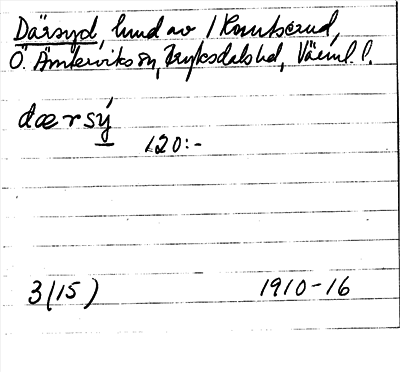 Därsyd, hmd av 1 Kombserud,
Ö. Ämterviks sn, Fryksdals hd, Värml. l.
dærsý
120:-
3(15) 1910-16